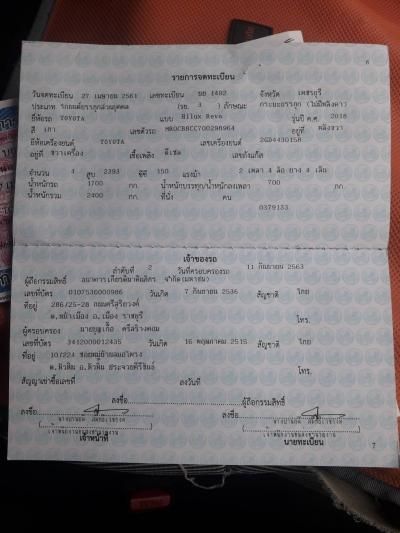 6
รายการจดทะเบียน
วันจดทะเบียน 27 เมษายน 2561 เลขทะเบียน 1492 จังหวัด เพชรบุรี
ประเภท รถยนต์บรรทุกส่วนบุคคล (รย. 3 ) ลักษณะ กระบะบรรทุก (ไม่มีหลังคา)
ยี่ห้อรถ TOYOTA แบบ Hilux Revo รุ่นปี ค.ศ. 2018
สี เทา เลขตัวรถ MR0CB8CC700298964 อยู่ที่
ยี่ห้อเครื่องยนต์ TOYOTA เลขเครื่องยนต์ 2GD4430158
อยู่ที่ ขวาเครื่อง เชื้อเพลิง ดีเซล เลขถังแก๊ส
จำนวน 4 สูบ 2393 ซีซี 150 แรงม้า 2 เพลา 4 ล้อ ยาง 4 เส้น
น้ำหนักรถ 1700 กก. น้ำหนักบรรทุก/น้ำหนักลงเพลา 700 กก.
น้ำหนักรวม 2400 กก. ที่นั่ง คน
0379133
เจ้าของรถ
ลำดับที่ 2 วันที่ครอบครองรถ 11 กันยายน 2563
ผู้ถือกรรมสิทธิ์ ธนาคารเกียรตินาคินภัทร จำกัด(มหาชน)
เลขที่บัตร 0107536000986 วันเกิด 7 กันยายน 2536 สัญชาติ ไทย
ที่อยู่ 286/25-28 ถนนศรีสุริยวงศ์
ต.หน้าเมือง อ.เมือง ราชบุรี โทร.
ผู้ครอบครอง
เลขที่บัตร 3412000012435 วันเกิด 16 พฤษภาคม 2515 สัญชาติ ไทย
ที่อยู่ 10/224
ต.หัวหิน อ.หัวหิน ประจวบคีรีขันธ์ โทร.
สัญญาเช่าซื้อเลขที่ ลงวันที่
ลงชื่อ ผู้ถือกรรมสิทธิ์
ลงชื่อ ลงชื่อ
เจ้าหน้าที่ นายทะเบียน
7